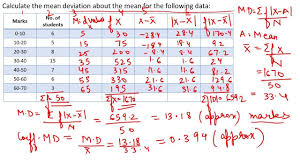 Calculate the mean deviation about the mean for the following data:
Marks No. of students f X X-X̄ |X-X̄| f|X-X̄|
0-10 6 5 30 -28.4 28.4 170.4
10-20 5 15 75 -18.4 18.4 92
20-30 8 25 200 -8.4 8.4 67.2
30-40 15 35 525 1.6 1.6 24
40-50 7 45 315 11.6 11.6 81.2
50-60 6 55 330 21.6 21.6 129.6
60-70 3 65 195 31.6 31.6 94.8
50 1670 659.2
M.D = Σ f|X-X̄| / N = 659.2 / 50 = 13.18 (approx) marks
Coeff. M.D = M.D / X̄ = 13.18 / 33.4 = 0.394 (approx)
M.D = Σ f|X-A| / N
A. Mean
X̄ = Σ f X / N
= 1670 / 50
= 33.4